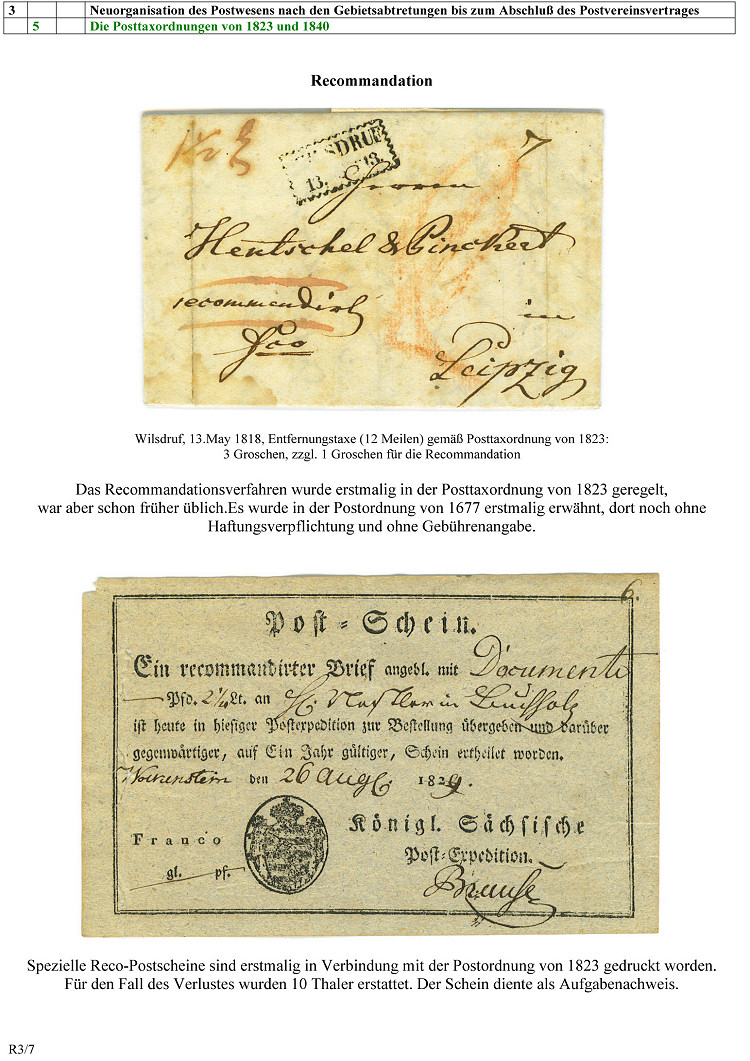 3 Neuorganisation des Postwesens nach den Gebietsabtretungen bis zum Abschluß des Postvereinsvertrages
5 Die Posttaxordnungen von 1823 und 1840
Recommandation
7
13.
Herren
Hentschel & Pinckert
recommandirt
in
fco
Leipzig
Wilsdruf, 13.May 1818, Entfernungstaxe (12 Meilen) gemäß Posttaxordnung von 1823:
3 Groschen, zzgl. 1 Groschen für die Recommandation
Das Recommandationsverfahren wurde erstmalig in der Posttaxordnung von 1823 geregelt,
war aber schon früher üblich.Es wurde in der Postordnung von 1677 erstmalig erwähnt, dort noch ohne
Haftungsverpflichtung und ohne Gebührenangabe.
6.
Post=Schein.
Ein recommandirter Brief angebl. mit Documente
Pfd. 2 1/4 Lt. an in Buchholz
ist heute in hiesiger Postexpedition zur Bestellung übergeben und darüber
gegenwärtiger, auf Ein Jahr gültiger, Schein ertheilet worden.
Wolkenstein den 26 Aug. 1829.
Königl. Sächsische
Franco
Post=Expedition.
gl. pf.
Spezielle Reco-Postscheine sind erstmalig in Verbindung mit der Postordnung von 1823 gedruckt worden.
Für den Fall des Verlustes wurden 10 Thaler erstattet. Der Schein diente als Aufgabenachweis.
R3/7